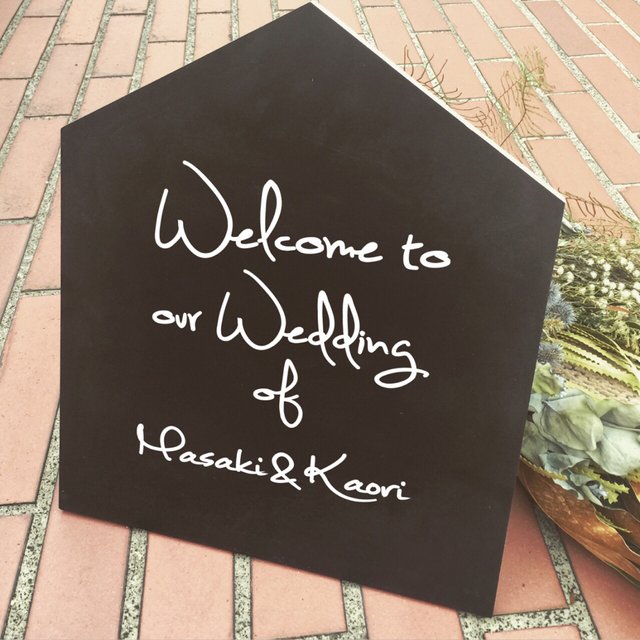 Welcome to
our Wedding
of
Masaki & Kaori